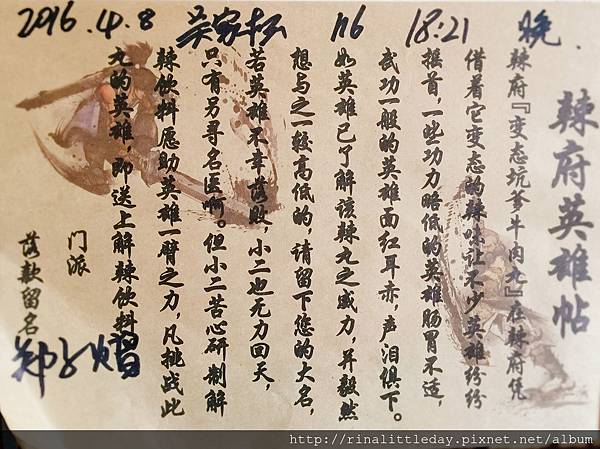 2016.4.8 吴家杯 116 18:21 晚.
辣府英雄帖
辣府『变态坑爹牛肉丸』在辣府凭
借着它变态的辣味让不少英雄纷纷
摇首,一些功力略低的英雄肠胃不适,
武功一般的英雄面红耳赤,声泪俱下。
如英雄已了解该辣丸之威力,并毅然
想与之一较高低的,请留下您的大名,
若英雄不幸落败,小二也无力回天,
只有另寻名医啊。但小二苦心研制解
辣饮料愿助英雄一臂之力,凡挑战此
丸的英雄,即送上解辣饮料
门派
落款留名
http://rinalittleday.pixnet.net/album